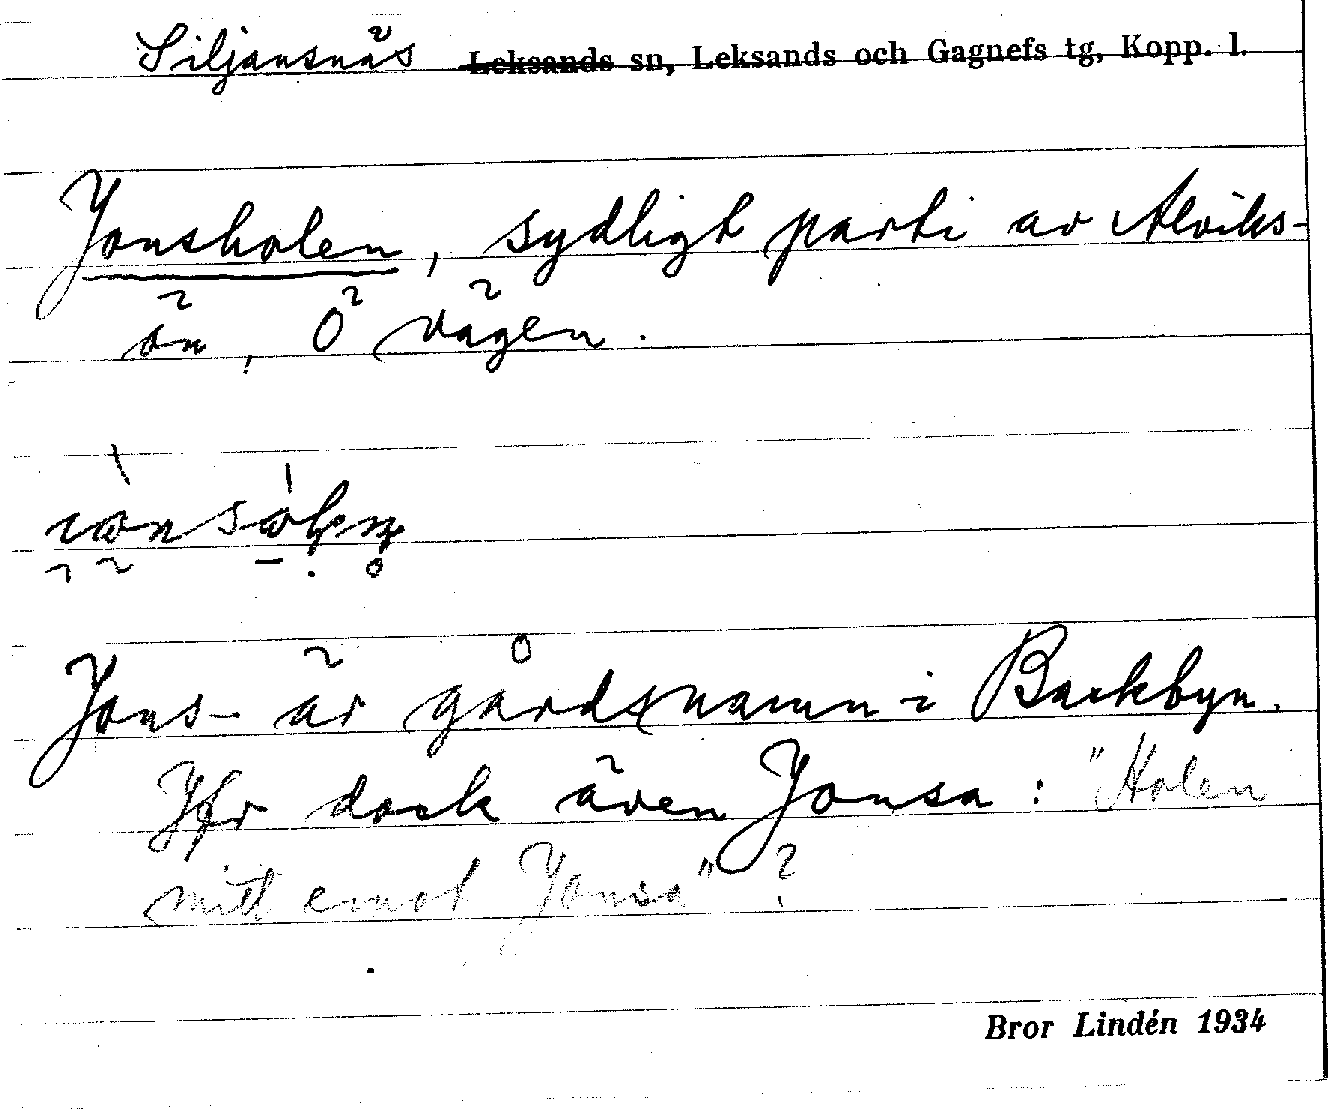 Siljansnäs Leksands sn, Leksands och Gagnefs tg, Kopp. l.
Jonsholen, sydligt parti av Alviks-
ön, Ö vägen.
Jons- är gårdsnamn i Backbyn.
Jfr dock även Jonsa: "Holen
mitt emot Jonsa"?
Bror Lindén 1934